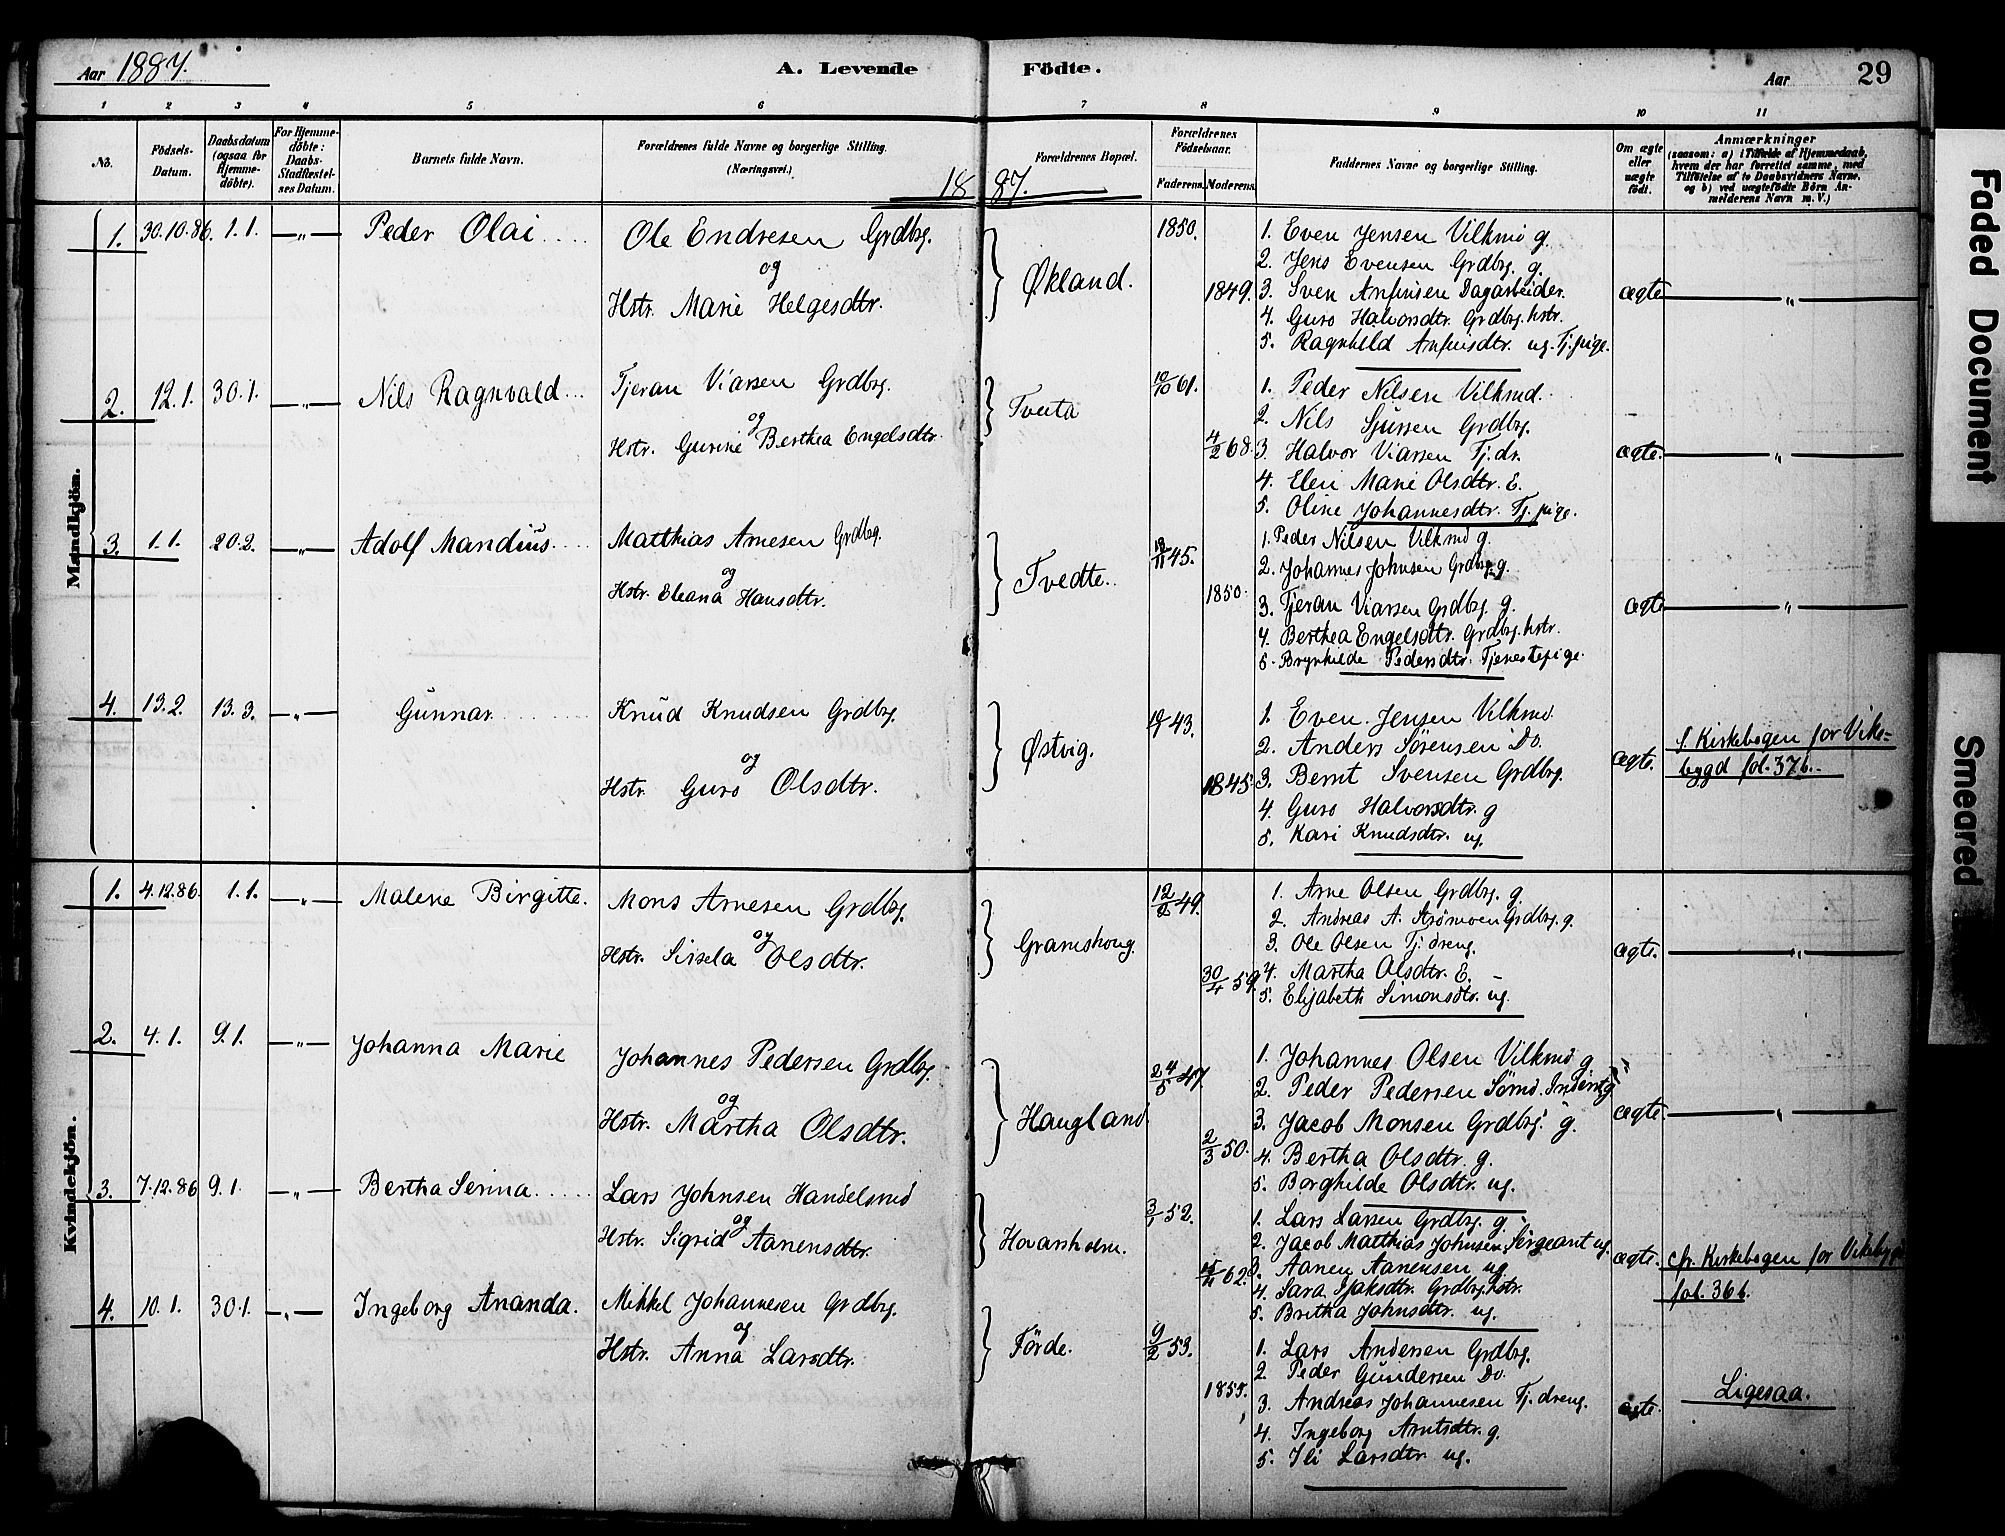 Aar 1887.
A. Levende Födte.
Aar
29
1 2 3 4 5 6 7 8 9 10 11
No.
Födsels-Datum.
Daabsdatum (ogsaa for Hjemme-döbte).
For Hjemme-döbte: Daabs-Stadfæstel-ses Datum.
Barnets fulde Navn.
Forældrenes fulde Navne og borgerlige Stilling. (Næringsvei.)
Forældrenes Bopæl.
Forældrenes Födselsaar.
Faderens. Moderens.
Faddernes Navne og borgerlige Stilling.
Om ægte eller uægte födt.
Anmærkninger
(saasom: a) i Tilfælde af Hjemmedaab,
hvem der har forrettet samme, med
Tilföielse af to Daabsvidners Navne,
og b) ved uægtefödte Börn An-
melderens Navn m. V.)
1887.
Mandkjön.
1. 30.10.86. 1.1. —„— Peder Olai
Ole Endresen Grdbrg.
og
Hstr. Marie Helgesdtr.
Økland.
1850.
1849.
1. Even Jensen Vilkmd g.
2. Jens Evensen Grdbrg. g.
3. Sven Anfinsen Dagarbeider.
4. Guro Halvorsdtr. Grdbrg. hstr.
5. Ragnhild Anfinsdtr. ug. Tj.pige.
ægte —„—
2. 12.1. 30.1. —„— Nils Ragnvald
Tjeran Viarsen Grdbrg.
og
Hstr. Gurine Berthea Engelsdtr.
Tveita
10/10 61.
4/2 68.
1. Peder Nilsen Vilkmd.
2. Nils Sjursen Grdbrg.
3. Halvor Viarsen Tj.dr.
4. Elen Marie Olsdtr. E.
5. Oline Johannesdtr. Tj.pige.
ægte. —„—
3. 1.1. 20.2. —„— Adolf Mandius
Matthias Arnesen Grdbrg.
og
Hstr. Eleana Hansdtr.
Tvedte.
45.
1850.
1. Peder Nilsen Vilkmd g.
2. Johannes Johnsen Grdbrg. g.
3. Tjeran Viarsen Grdbrg. g.
4. Berthea Engelsdtr. Grdbrg. hstr.
5. Brynhilde Pedersdtr. Tjenestepige.
ægte —„—
4. 13.2. 13.3. —„— Gunnar
Knud Knudsen Grdbrg.
og
Hstr. Guro Olsdtr.
Østvig.
43.
1845.
1. Even Jensen Vilkmd.
2. Anders Sörensen Do.
3. Bernt Svensen Grdbrg.
4. Guro Halvorsdtr. g
5. Kari Knudsdtr. ug.
ægte.
f. Kirkebogen for Vike-
bygd fol. 37b.
Kvindekjön.
1. 4.12.86. 1.1. —„— Malene Birgitte.
Mons Arnesen Grdbrg.
og
Hstr. Sissela Olsdtr.
Gramshoug.
12/2 49.
30/4 59.
1. Arne Olsen Grdbrg. g.
2. Andreas A. Grdbrg. g.
3. Ole Olsen Tj.dreng.
4. Martha Olsdtr. E.
5. Elisabeth Simonsdtr. ug.
ægte. —„—
2. 4.1. 9.1. —„— Johanna Marie
Johannes Pedersen Grdbrg.
og
Hstr. Martha Olsdtr.
Haugland.
24/5 47
2/3 50.
1. Johannes Olsen Vilkmd g.
2. Peder Pedersen Sömd. g
3. Jacob Monsen Grdbrg. g.
4. Bertha Olsdtr. g.
5. Borghilde Olsdtr. ug.
ægte. —„—
3. 7.12.86 9.1. —„— Bertha Serina
Lars Johnsen Handelsmd
og
Hstr. Sigrid Aanensdtr.
Hovarsholm.
3/1 52.
62
1. Lars Larsen Grdbrg. g.
2. Jacob Matthias Johnsen, Sergeant ug.
3. Aanen Aanensen ug.
4. Sara Isaksdtr. Grdbrg.hstr.
5. Britha Johnsdtr. ug.
ægte.
cfr. Kirkebogen for Vikebygd
fol. 36 b.
4. 10.1. 30.1. —„— Ingeborg Ananda.
Mikkel Johannesen Grdbrg.
og
Hstr. Anna Larsdtr.
Förde.
9/2 53.
1855.
1. Lars Andersen Grdbrg.
2. Peder Gundersen Do.
3. Andreas Johannesen Tj.dreng.
4. Ingeborg Arntsdtr. g
5. Ili Larsdtr. ug.
ægte.
Ligesaa.
Faded Document
Smeared